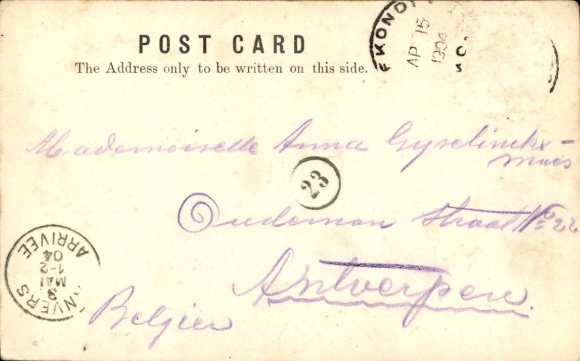 POST CARD
The Address only to be written on this side.
EKONDI
AP 15
1904
Mademoiselle Anna Gyselinckx-
Maes
23
Oudeman Straat No 22
Antwerpen.
Belgien
ANVERS
3
MAI
1-2
04
ARRIVEE